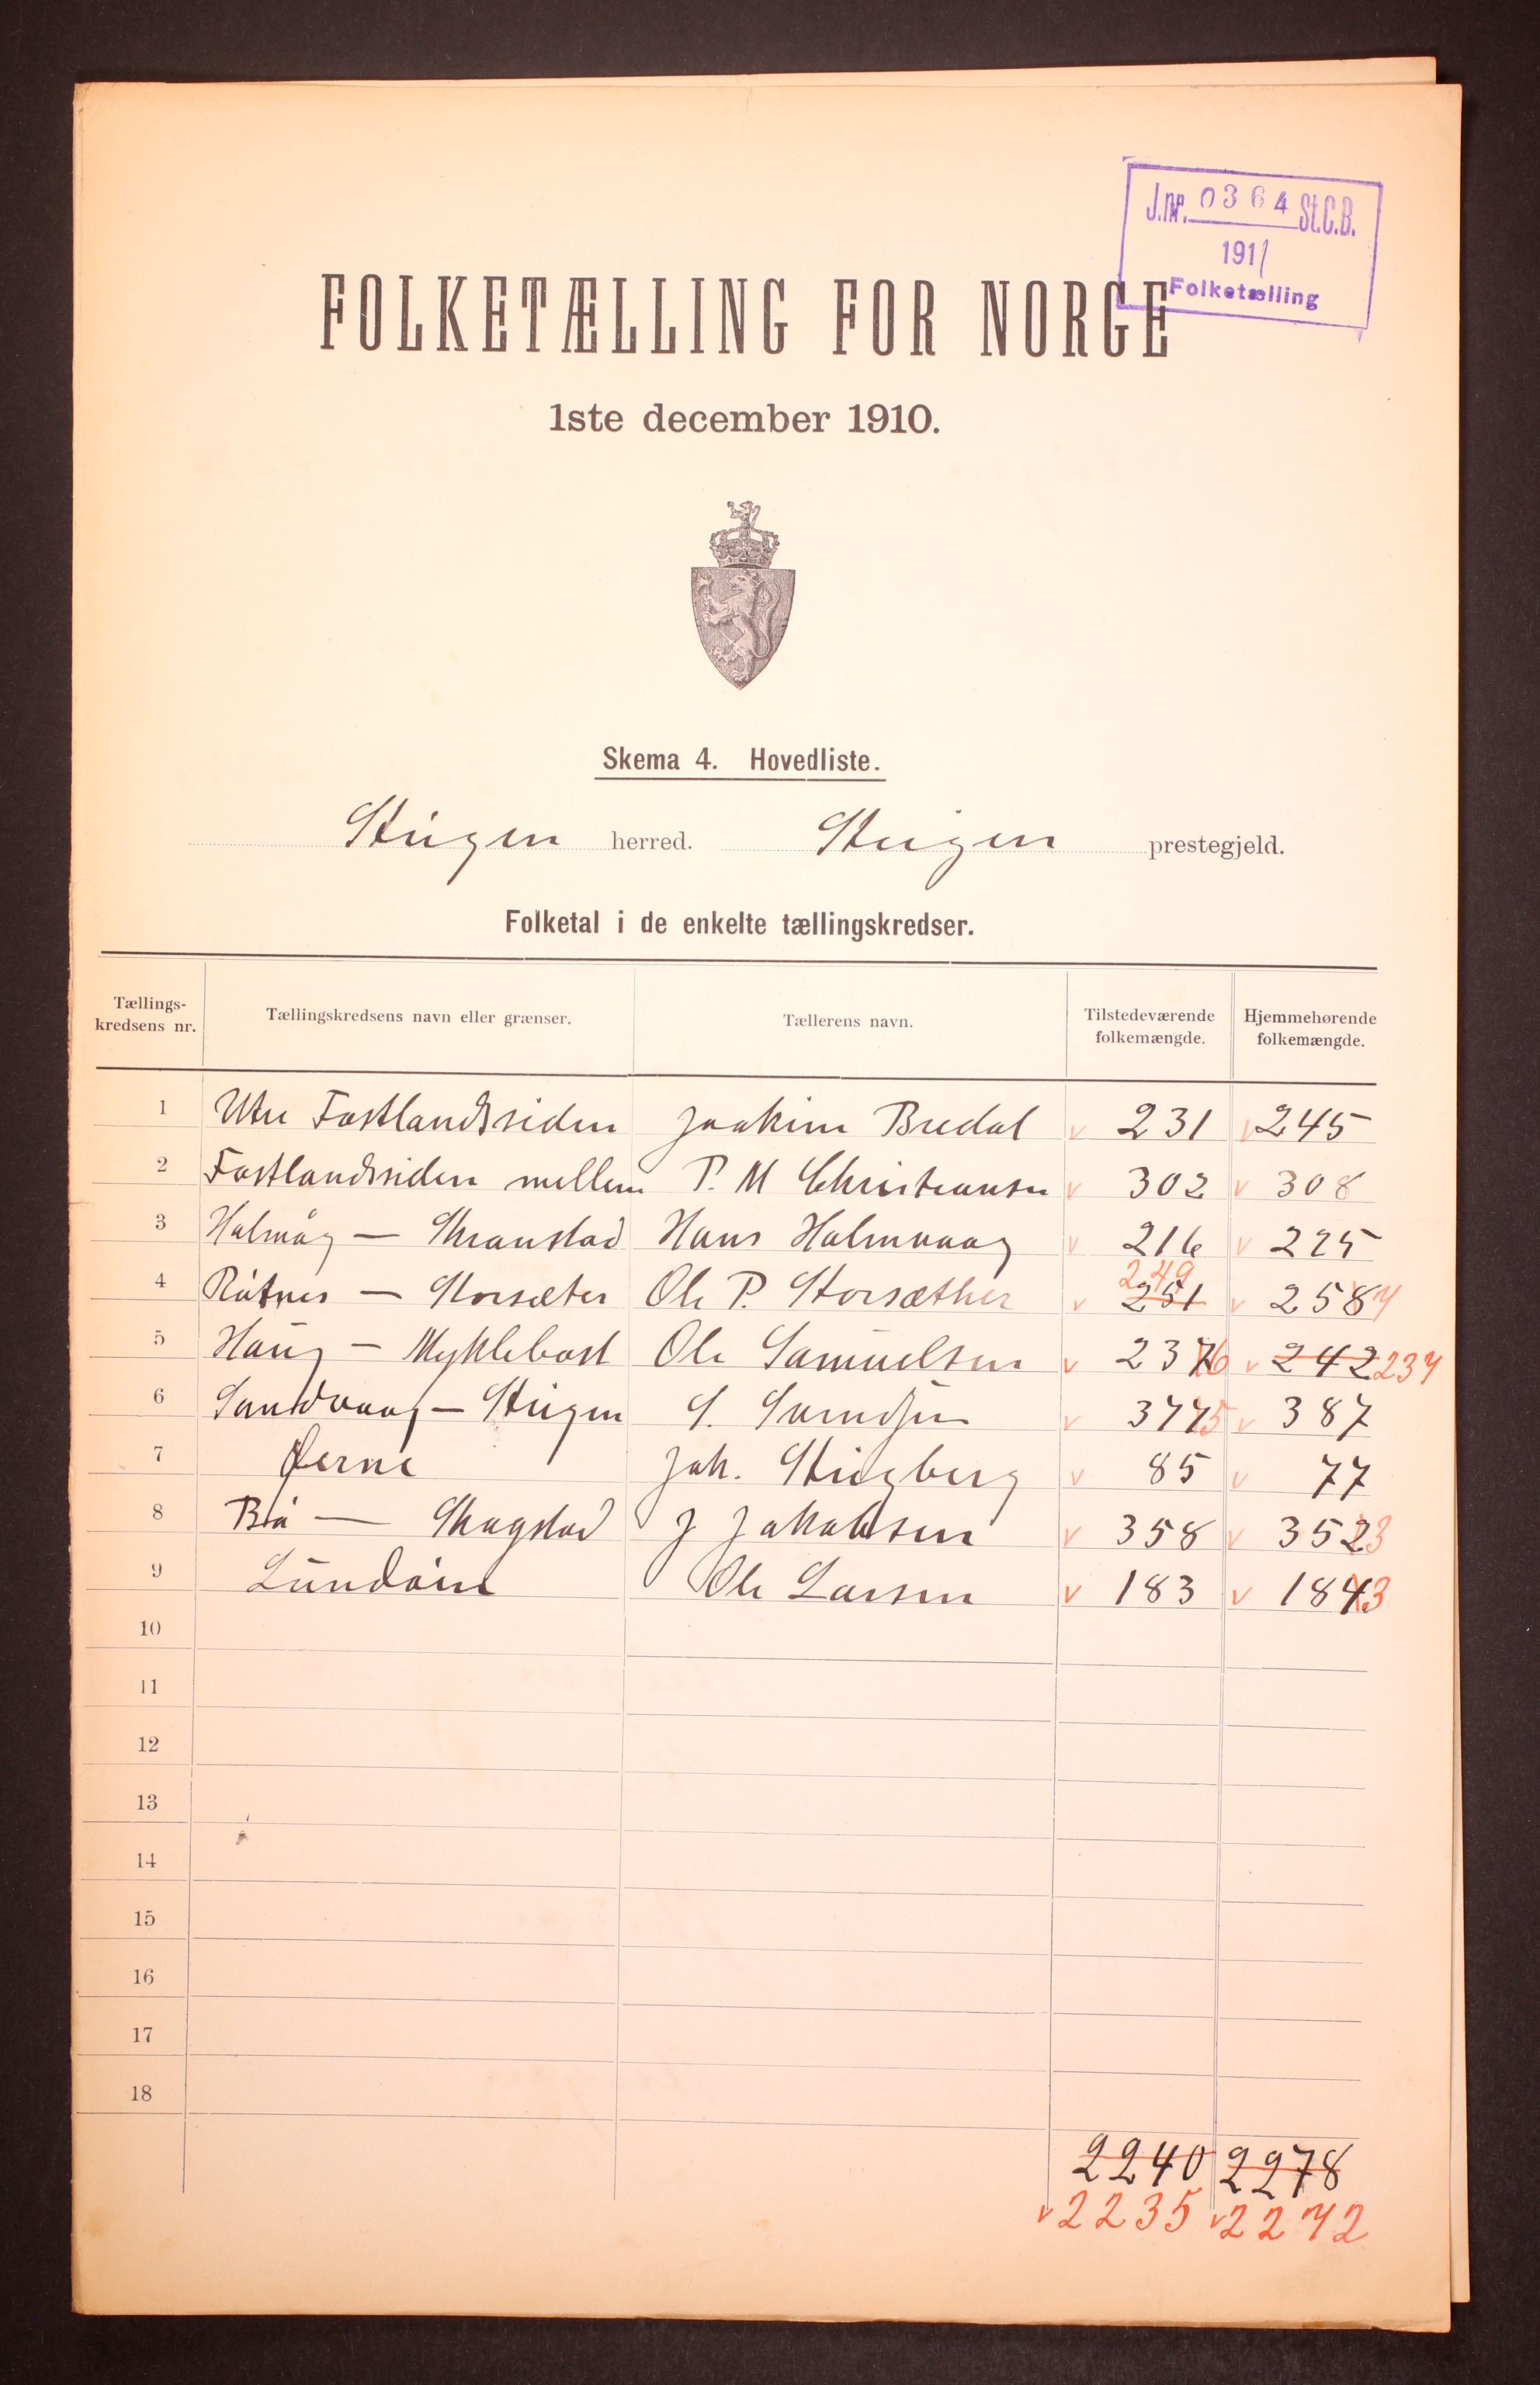 J.nr. 0364 St.C.B.
1911
Folketælling
FOLKETÆLLING FOR NORGE
1ste december 1910.
Skema 4. Hovedliste.
Steigen herred. Steigen prestegjeld.
Folketal i de enkelte tællingskredser.
Tællings-kredsens nr. Tællingskredsens navn eller grænser. Tællerens navn. Tilstedeværende folkemængde. Hjemmehørende folkemængde.
1 Utre Fastlandssiden Joakim Bredal v 231 v 245
2 Fastlandssiden mellem P. M Christiansen v 302 v 308
3 Holmåg — Skranstad Hans Holmvaag v 216 v 225
4 Råtnes — Storsæter Ole P. Storsæther v 251 249 v 258 7
5 Haug — Myklebost Ole Samuelsen v 237 6 v 242 237
6 Sandvaag — Steigen S. v 377 5 v 387
7 Øerne Joh. Steigberg v 85 v 77
8 Bå — Skagstad J Jakobsen v 358 v 352 3
9 Lundøen Ole Larsen v 183 v 184 3
10
11
12
13
14
15
16
17
18
2240 2278
v 2235 v 2272